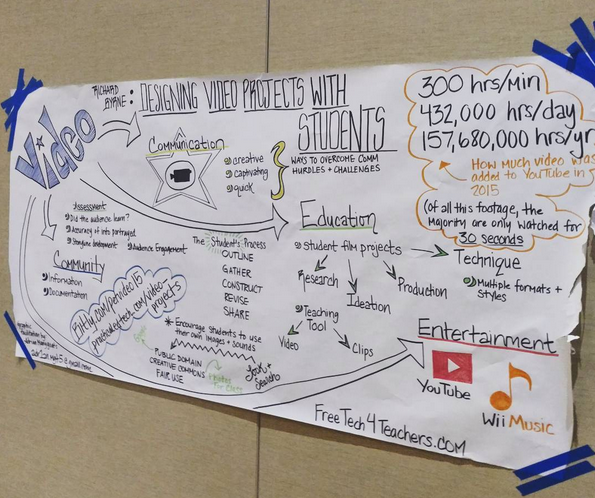 Video
RICHARD BYRNE: DESIGNING VIDEO PROJECTS WITH
STUDENTS
Communication
creative
captivating
quick
WAYS TO OVERCOME COMM
HURDLES + CHALLENGES
300 hrs/min
432,000 hrs/day
157,680,000 hrs/yr
How much video was
added to YouTube in
2015
(Of all this footage, the
majority are only watched for
30 seconds
Assessment
Did the audience learn?
Accuracy of info portrayed
Storyline development
Audience Engagement
Community
Information
Documentation
The Student's Process
OUTLINE
GATHER
CONSTRUCT
REVISE
SHARE
Education
student film projects
Research
Ideation
Production
Technique
Multiple formats +
styles
Teaching
Tool
Video
Clips
practicaledtech.com/video-
projects
Encourage students to use
their own images + sounds
PUBLIC DOMAIN
CREATIVE COMMONS
FAIR USE
Search
Entertainment
YouTube
Wii Music
FreeTech4Teachers.COM